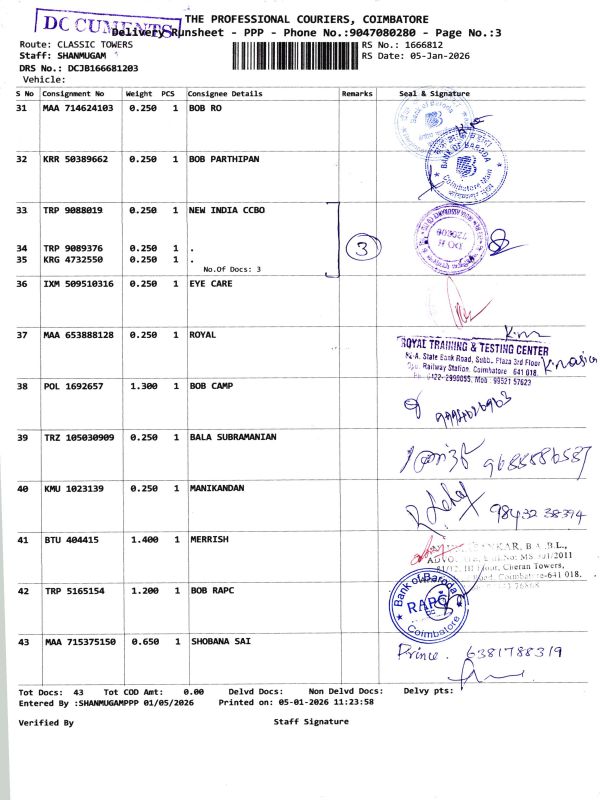 DOCUMENTS
THE PROFESSIONAL COURIERS, COIMBATORE
Delivery Runsheet - PPP - Phone No.:9047080280 - Page No.:3
Route: CLASSIC TOWERS
RS No.: 1666812
Staff: SHANMUGAM
RS Date: 05-Jan-2026
DRS No.: DCJB166681203
Vehicle:
S No Consignment No Weight PCS Consignee Details Remarks Seal & Signature
31 MAA 714624103 0.250 1 BOB RO
Bank of Baroda
32 KRR 50389662 0.250 1 BOB PARTHIPAN
BANK OF BARODA
Coimbatore Main
33 TRP 9088019 0.250 1 NEW INDIA CCBO
34 TRP 9089376 0.250 1 .
3
35 KRG 4732550 0.250 1 .
No.Of Docs: 3
36 IXM 509510316 0.250 1 EYE CARE
37 MAA 653888128 0.250 1 ROYAL
ROYAL TRAINING & TESTING CENTER
State Bank Road, Subb. Plaza 3rd Floor
Railway Station, Coimbatore 641 018.
Ph: 0422-2990055, Mob: 99521 57623
38 POL 1692657 1.300 1 BOB CAMP
39 TRZ 105030909 0.250 1 BALA SUBRAMANIAN
9688886587
40 KMU 1023139 0.250 1 MANIKANDAN
98432 38394
41 BTU 404415 1.400 1 MERRISH
B.A.,B.L.,
Cheran Towers,
Road, Coimbatore-641 018.
42 TRP 5165154 1.200 1 BOB RAPC
Bank of Baroda
RAPC
Coimbatore
43 MAA 715375150 0.650 1 SHOBANA SAI
Prince. 6381788319
Tot Docs: 43 Tot COD Amt: 0.00 Delvd Docs: Non Delvd Docs: Delvy pts:
Entered By :SHANMUGAMPPP 01/05/2026 Printed on: 05-01-2026 11:23:58
Verified By Staff Signature